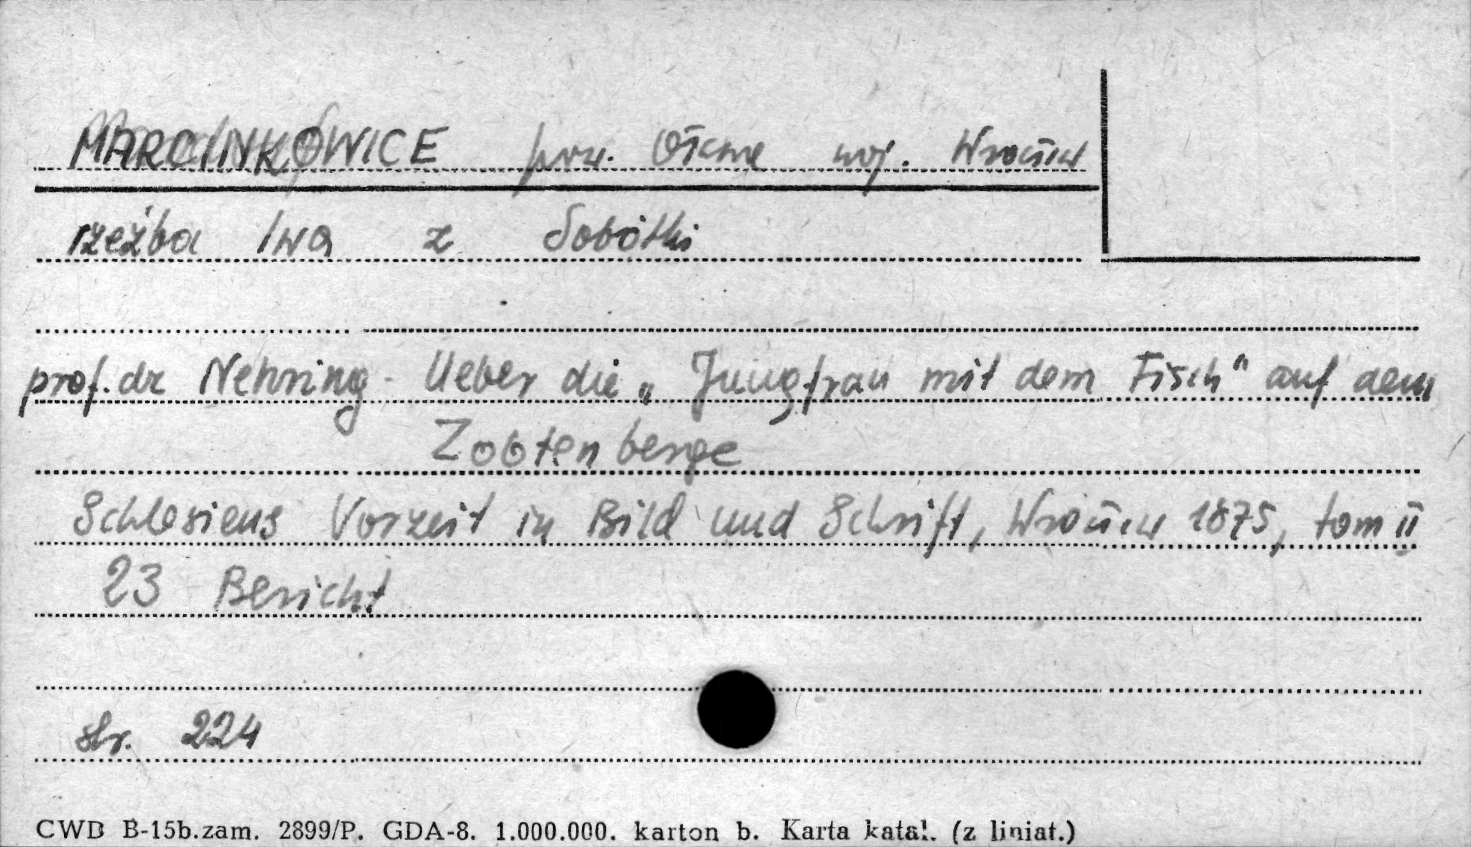 MARCINKOWICE pow. Oława woj. Wrocław
rzeźba lwa z Sobótki
prof. dr Nehring - Ueber die „Jungfrau mit dem Fisch" auf dem
Zobtenberge
Schlesiens Vorzeit in Bild und Schrift, Wrocław 1875, tom II
23 Bericht
str. 224
CWD B-15b.zam. 2899/P. GDA-8. 1.000.000. karton b. Karta katal. (z liniat.)